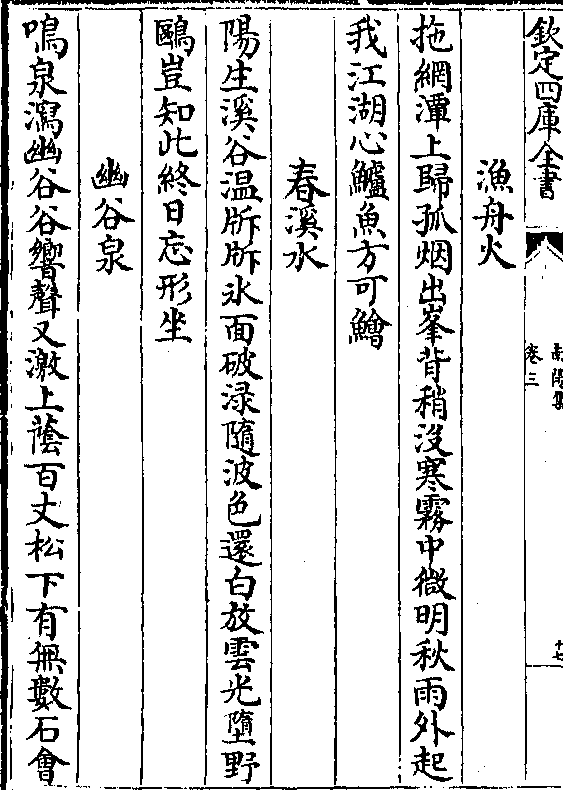 欽定四庫全書
南陽集
卷三
十七
漁舟火
拖網潭上歸孤烟出峯背稍沒寒霧中微明秋雨外起
我江湖心鱸魚方可鱠
春溪水
陽生溪谷温㸞㸞氷面破渌隨波色還白放雲光墮野
鷗豈知此終日忘形坐
幽谷泉
鳴泉瀉幽谷谷響聲又激上蔭百丈松下有無數石會